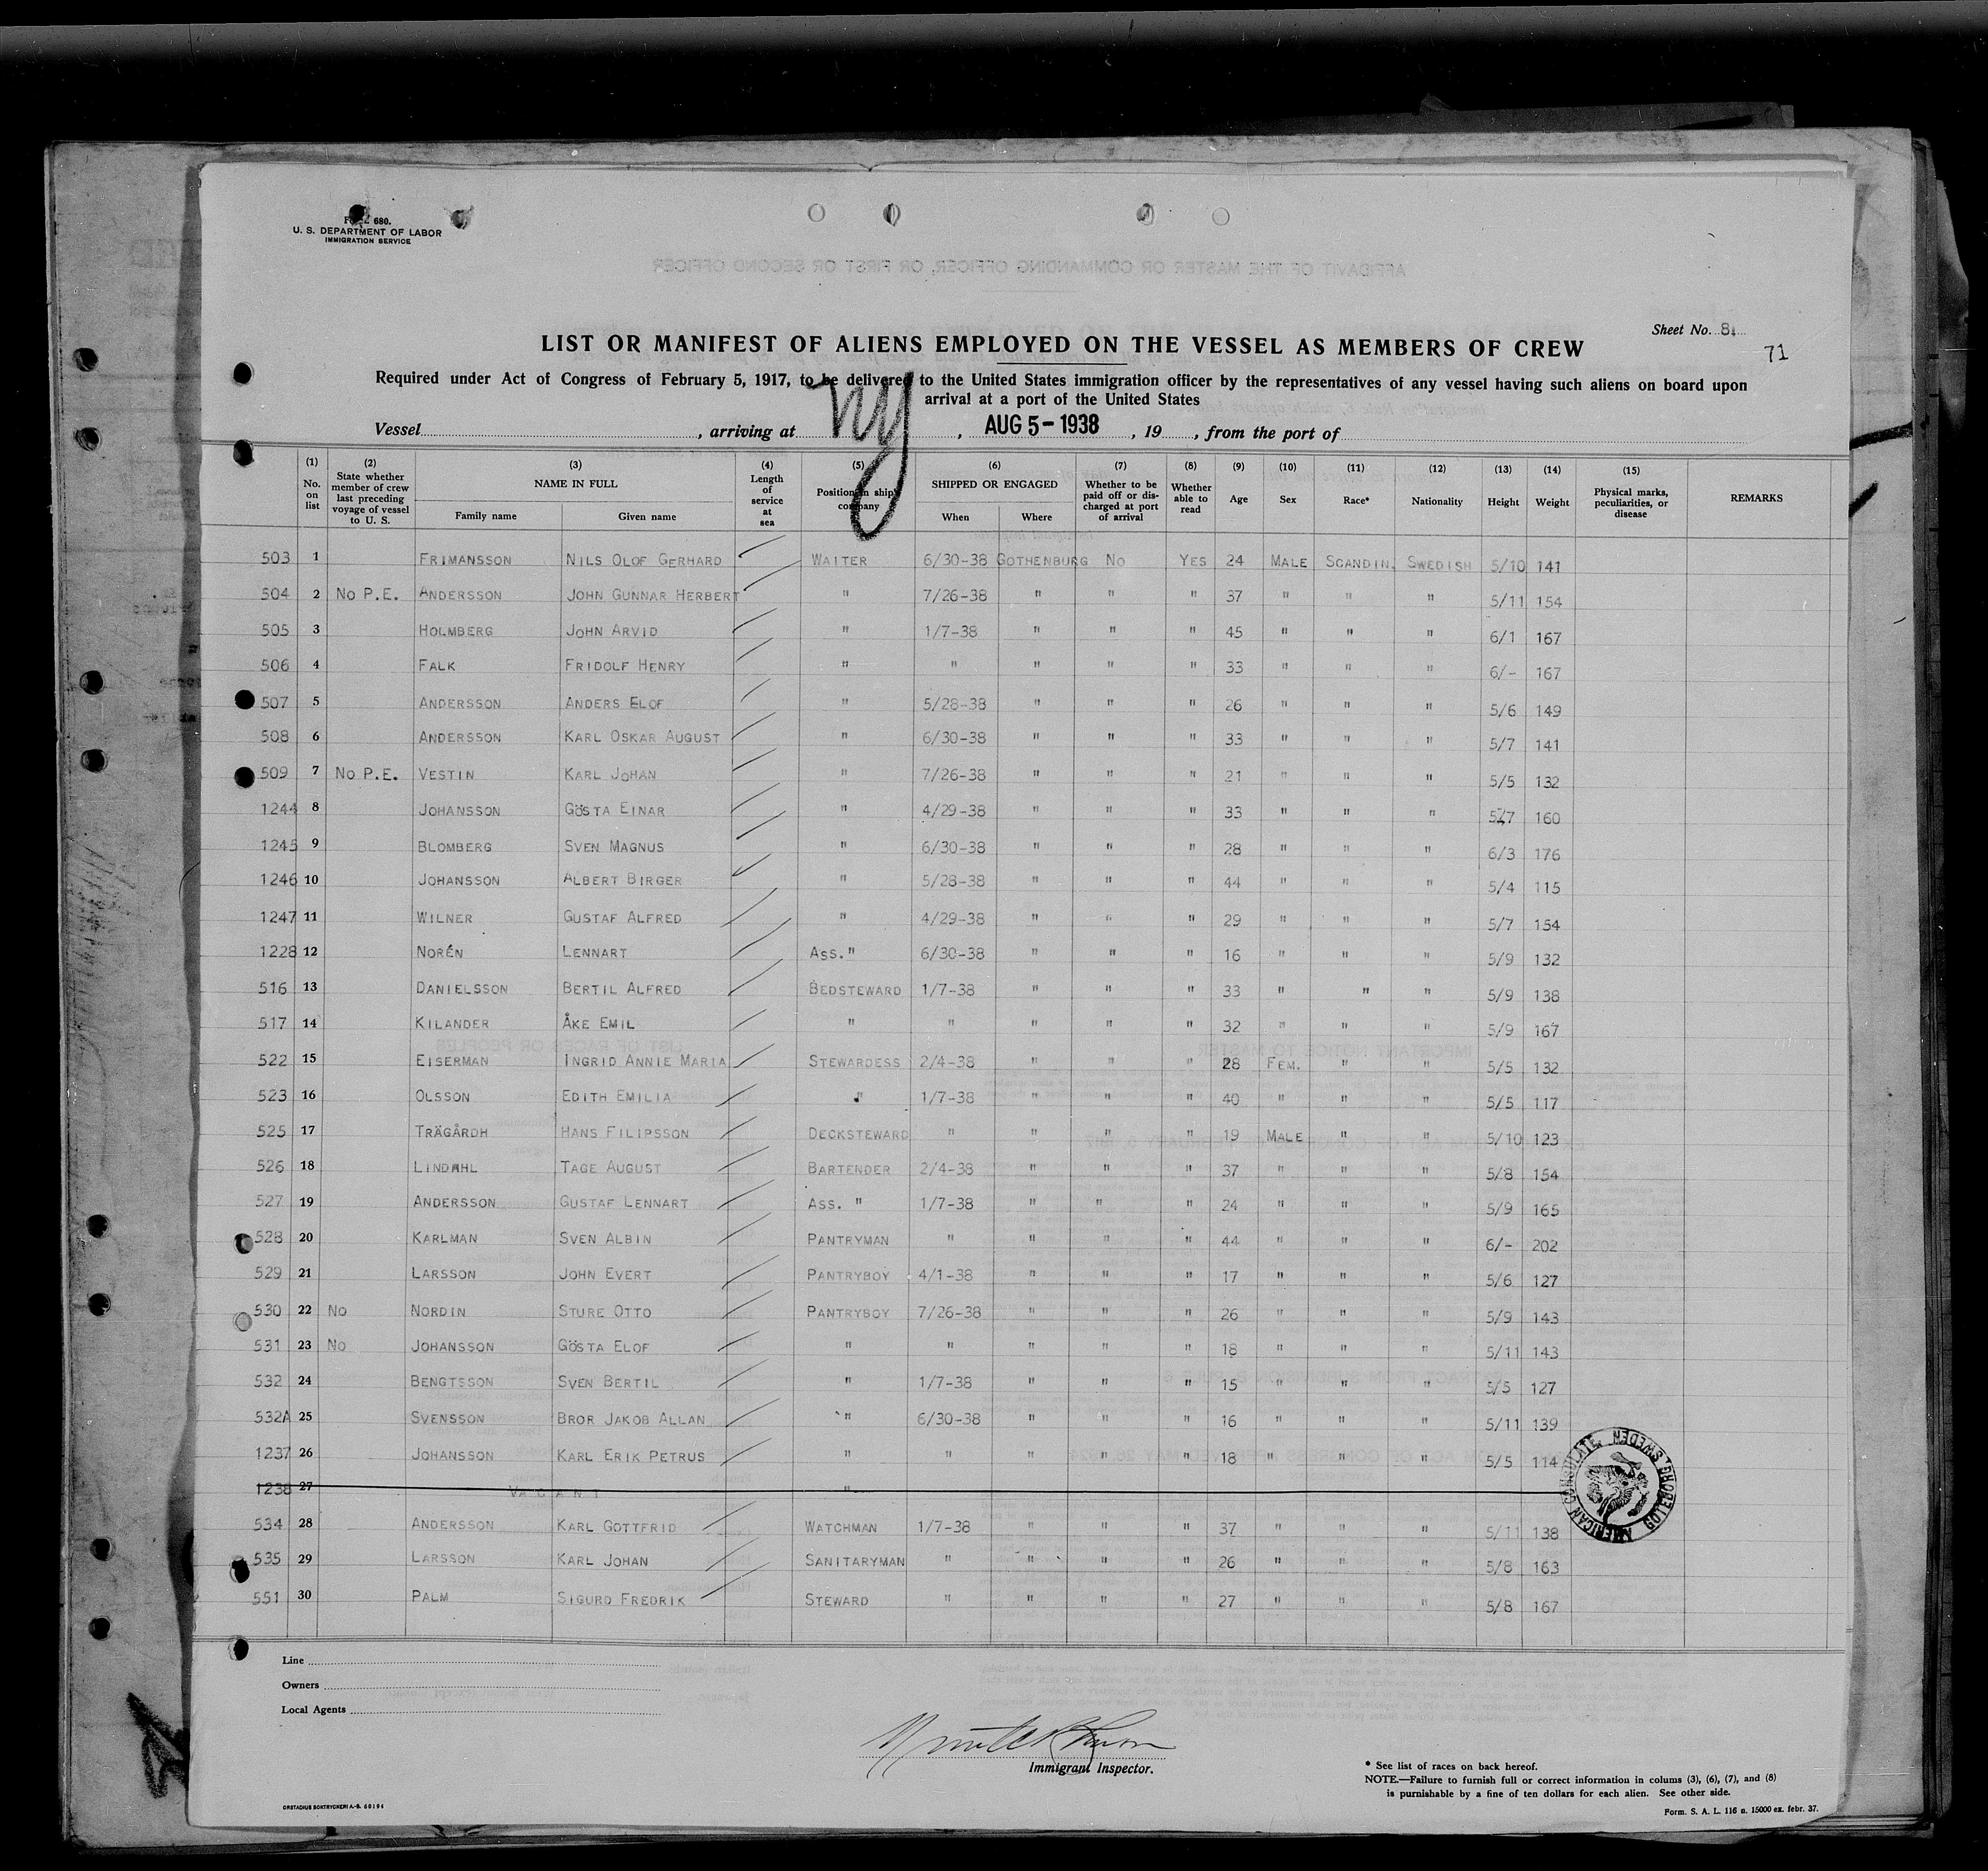 Form 680.
U. S. DEPARTMENT OF LABOR
IMMIGRATION SERVICE
AFFIDAVIT OF THE MASTER OR COMMANDING OFFICER, OR FIRST OR SECOND OFFICER
Sheet No. 8.
71
LIST OR MANIFEST OF ALIENS EMPLOYED ON THE VESSEL AS MEMBERS OF CREW
Required under Act of Congress of February 5, 1917, to be delivered to the United States immigration officer by the representatives of any vessel having such aliens on board upon
arrival at a port of the United States
Vessel , arriving at NY , AUG 5-1938 , 19 , from the port of
(1) No. on list (2) State whether member of crew last preceding voyage of vessel to U. S. (3) NAME IN FULL Family name Given name (4) Length of service at sea (5) Position in ship's company (6) SHIPPED OR ENGAGED When Where (7) Whether to be paid off or discharged at port of arrival (8) Whether able to read (9) Age (10) Sex (11) Race* (12) Nationality (13) Height (14) Weight (15) Physical marks, peculiarities, or disease REMARKS
503 1 FRIMANSSON NILS OLOF GERHARD WAITER 6/30-38 GOTHENBURG NO YES 24 MALE SCANDIN. SWEDISH 5/10 141
504 2 NO P.E. ANDERSSON JOHN GUNNAR HERBERT " 7/26-38 " " " 37 " " " 5/11 154
505 3 HOLMBERG JOHN ARVID " 1/7-38 " " " 45 " " " 6/1 167
506 4 FALK FRIDOLF HENRY " " " " " 33 " " " 6/- 167
507 5 ANDERSSON ANDERS ELOF " 5/28-38 " " " 26 " " " 5/6 149
508 6 ANDERSSON KARL OSKAR AUGUST " 6/30-38 " " " 33 " " " 5/7 141
509 7 NO P.E. VESTIN KARL JOHAN " 7/26-38 " " " 21 " " " 5/5 132
1244 8 JOHANSSON GÖSTA EINAR " 4/29-38 " " " 33 " " " 5/7 160
1245 9 BLOMBERG SVEN MAGNUS " 6/30-38 " " " 28 " " " 6/3 176
1246 10 JOHANSSON ALBERT BIRGER " 5/28-38 " " " 44 " " " 5/4 115
1247 11 WILNER GUSTAF ALFRED " 4/29-38 " " " 29 " " " 5/7 154
1228 12 NORÉN LENNART ASS. " 6/30-38 " " " 16 " " " 5/9 132
516 13 DANIELSSON BERTIL ALFRED BEDSTEWARD 1/7-38 " " " 33 " " " 5/9 138
517 14 KILANDER ÅKE EMIL " " " " " 32 " " " 5/9 167
522 15 EISERMAN INGRID ANNIE MARIA STEWARDESS 2/4-38 " " " 28 FEM. " " 5/5 132
523 16 OLSSON EDITH EMILIA " 1/7-38 " " " 40 " " " 5/5 117
525 17 TRÄGÅRDH HANS FILIPSSON DECKSTEWARD " " " " 19 MALE " " 5/10 123
526 18 LINDAHL TAGE AUGUST BARTENDER 2/4-38 " " " 37 " " " 5/8 154
527 19 ANDERSSON GUSTAF LENNART ASS. " 1/7-38 " " " 24 " " " 5/9 165
528 20 KARLMAN SVEN ALBIN PANTRYMAN " " " " 44 " " " 6/- 202
529 21 LARSSON JOHN EVERT PANTRYBOY 4/1-38 " " " 17 " " " 5/6 127
530 22 NO NORDIN STURE OTTO PANTRYBOY 7/26-38 " " " 26 " " " 5/9 143
531 23 NO JOHANSSON GÖSTA ELOF " " " " " 18 " " " 5/11 143
532 24 BENGTSSON SVEN BERTIL " 1/7-38 " " " 15 " " " 5/5 127
532A 25 SVENSSON BROR JAKOB ALLAN " 6/30-38 " " " 16 " " " 5/11 139
1237 26 JOHANSSON KARL ERIK PETRUS " " " " " 18 " " " 5/5 114
1238 27 VACANT "
534 28 ANDERSSON KARL GOTTFRID WATCHMAN 1/7-38 " " " 37 " " " 5/11 138
535 29 LARSSON KARL JOHAN SANITARYMAN " " " " 26 " " " 5/8 163
551 30 PALM SIGURD FREDRIK STEWARD " " " " 27 " " " 5/8 167
AMERICAN CONSULATE, GOTEBORG, SWEDEN
Line
Owners
Local Agents
Immigrant Inspector.
* See list of races on back hereof.
NOTE.—Failure to furnish full or correct information in colums (3), (6), (7), and (8)
is punishable by a fine of ten dollars for each alien. See other side.
ORSTADIUS BOKTRYCKERI A.-B. 60194
Form. S. A. L. 116 n. 15000 ex. febr. 37.